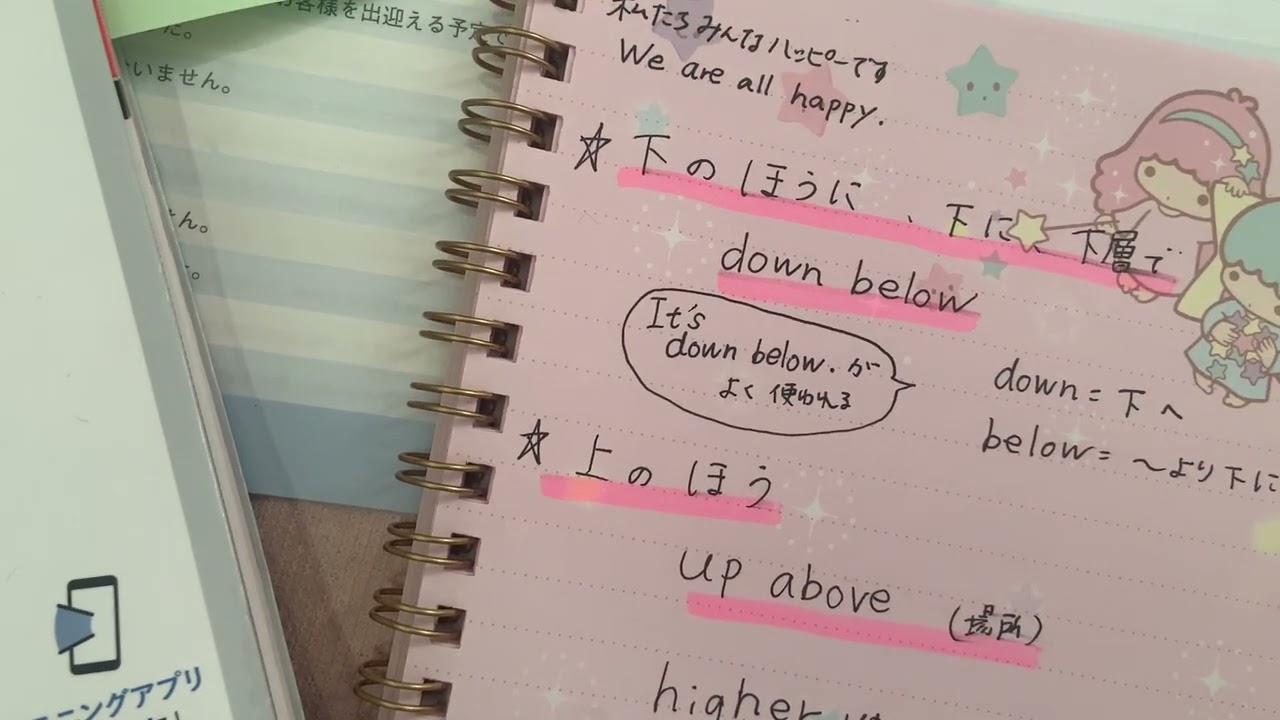 お客様を出迎える予定で
た。
いません。
せん。
た。
ニングアプリ
私たちみんなハッピーです
We are all happy.
☆ 下のほうに、下に、下層で
down below
It's
down below. が
よく 使われる
down = 下へ
below = 〜より下に
☆ 上のほう
up above (場所)
higher